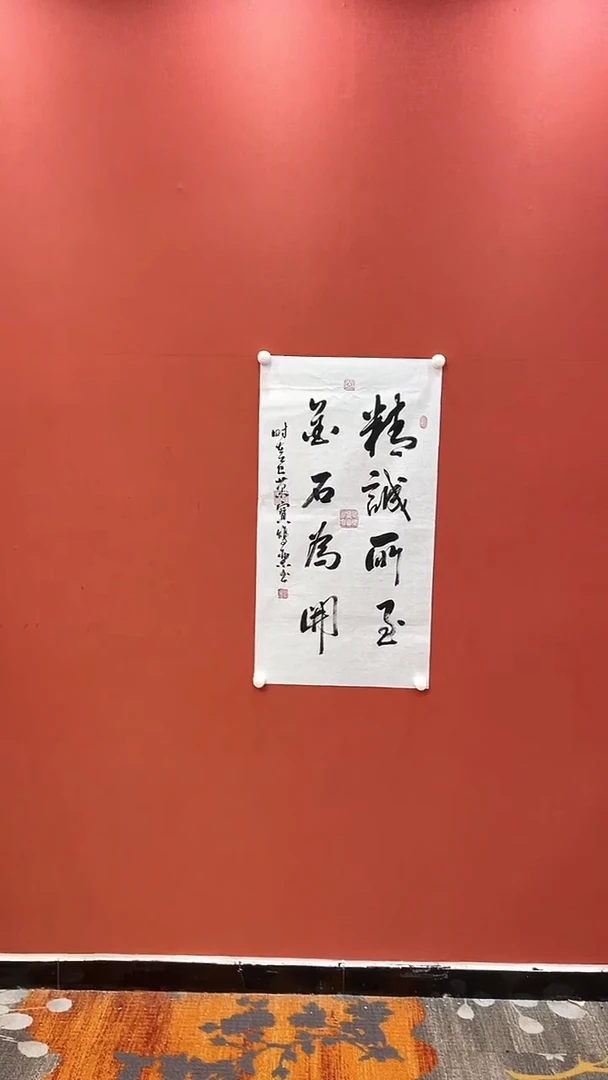 精誠所至
金石為開
时在乙巳